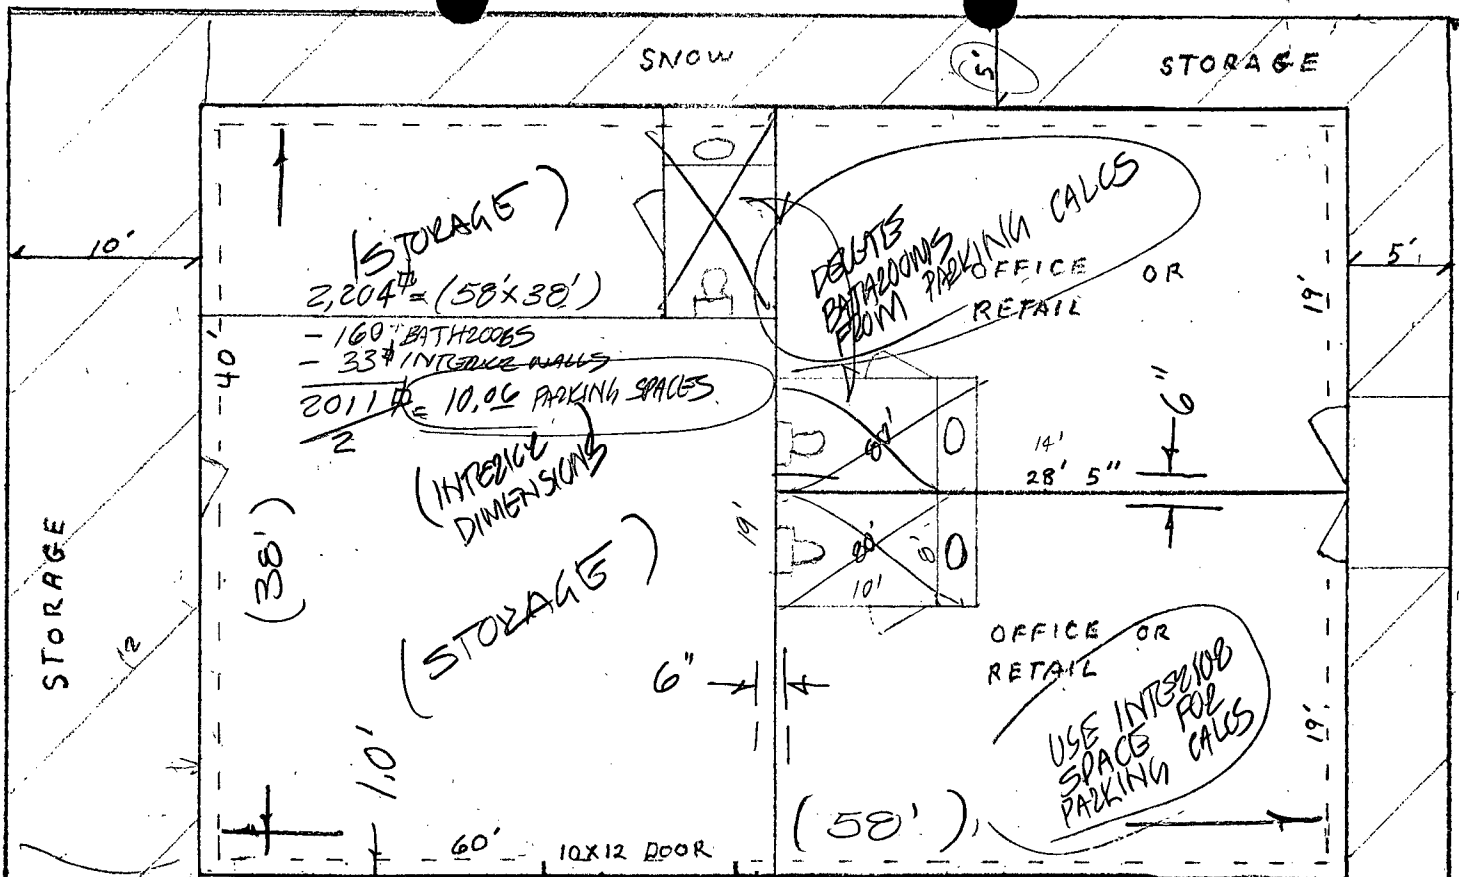 SNOW
5'
STORAGE
10'
5'
(STORAGE)
2,204# = (58'x38')
- 160# BATHROOMS
- 33# INTERIOR WALLS
2011# = 10.06 PARKING SPACES
2
(INTERIOR
DIMENSIONS)
DELETE
BATHROOMS
FROM PARKING CALCS
OFFICE OR
RETAIL
19'
40'
6"
80'
14'
28' 5"
(38')
19'
80'
8'
10'
STORAGE
12
(STORAGE)
6"
OFFICE OR
RETAIL
USE INTERIOR
SPACE FOR
PARKING CALCS
19'
1.0'
(58')
60'
10X12 DOOR